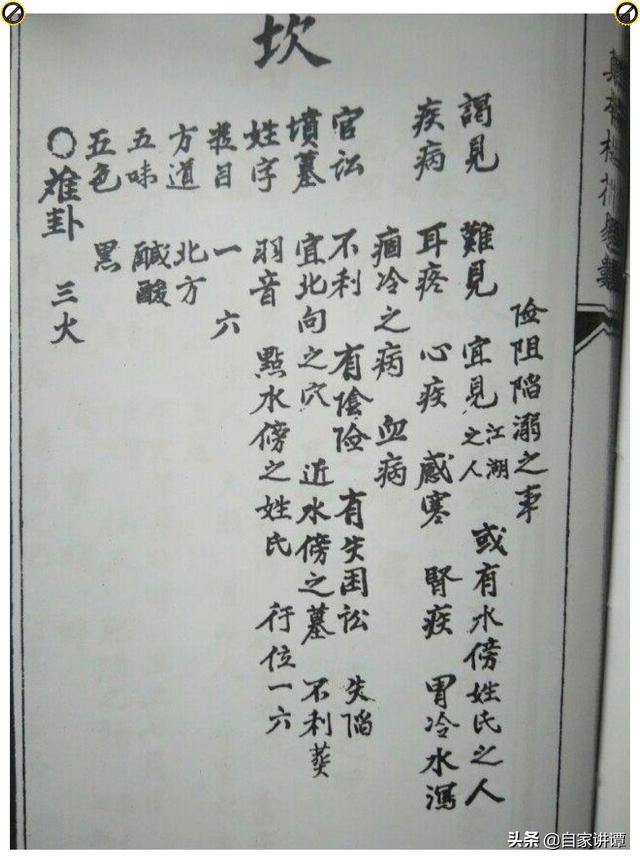 坎
險阻陷溺之事
謁見 難見 宜見江湖之人 或有水傍姓氏之人
疾病 耳疼 心疾 感寒 腎疾 胃冷水瀉
痼冷之病 血病
官訟 不利 有陰險 有失困訟 失陷
墳墓 宜北向之穴 近水傍之墓 不利葬
姓字 羽音 點水傍之姓氏 行位一六
數目 一 六
方道 北方
五味 鹹酸
五色 黑
○離卦 三火
头条 @自家讲谭